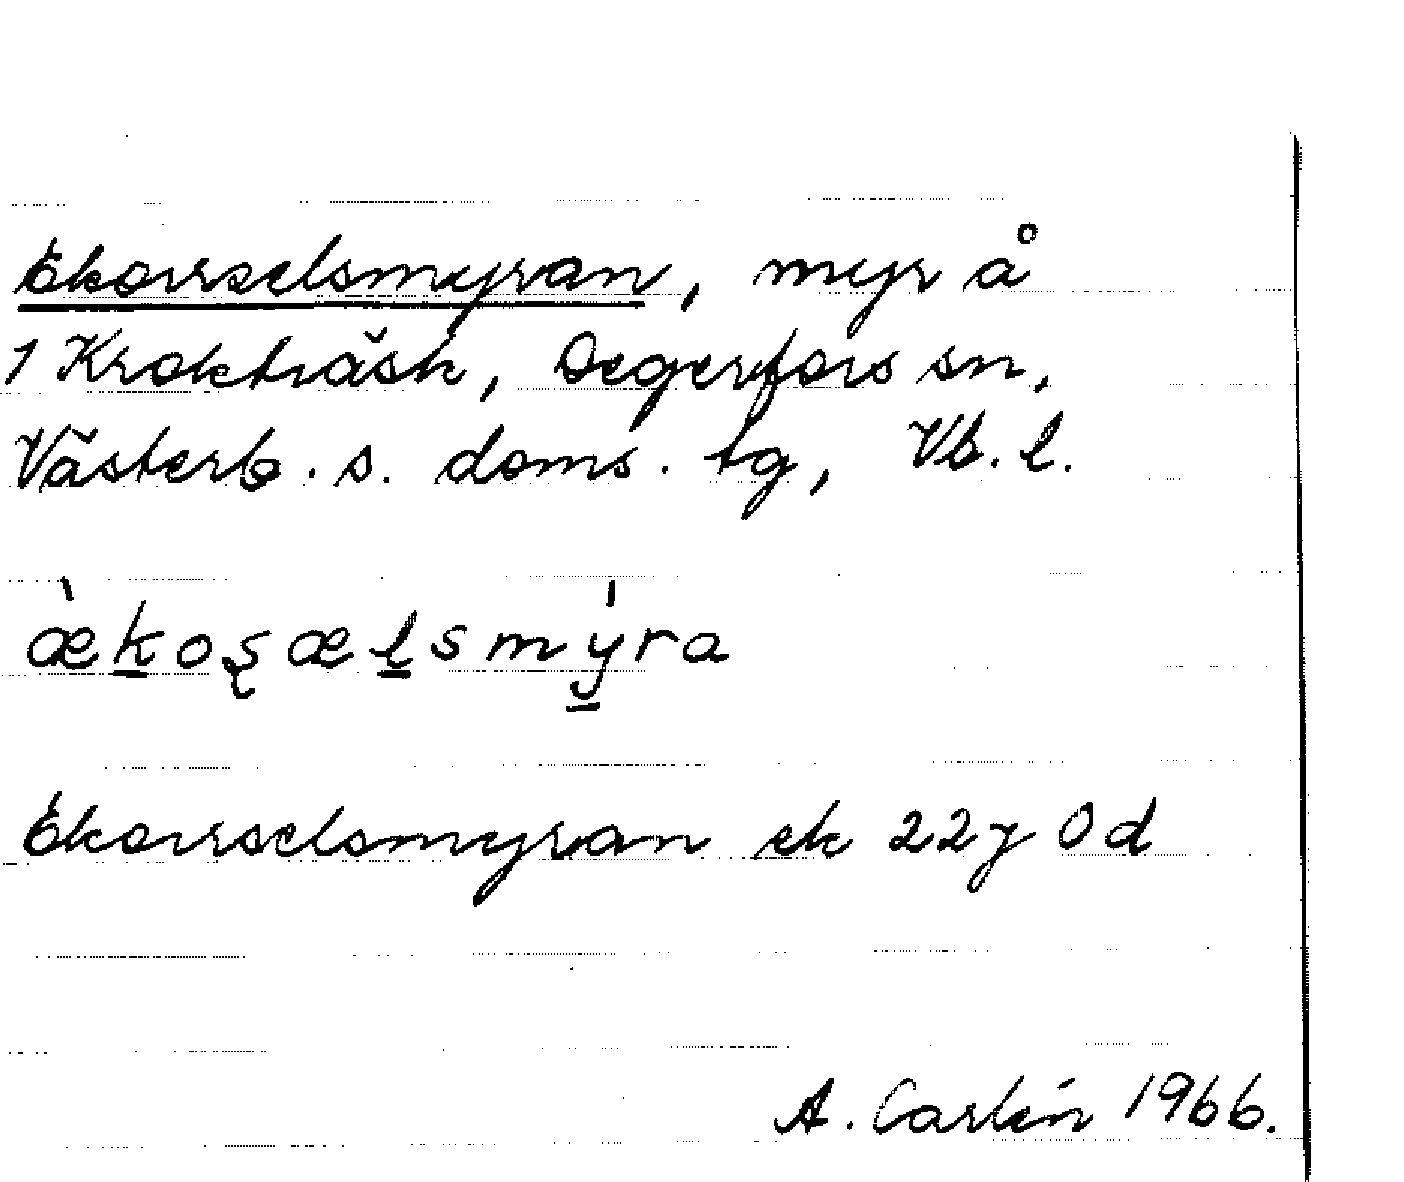 Ekorrselsmyran, myr å
1 Krokträsk, Degerfors sn,
Västerb. s. doms. tg, Vb. l.
æ̀koşælsmýra
Ekorrselsmyran ek 22J 0d
A. Carlén 1966.